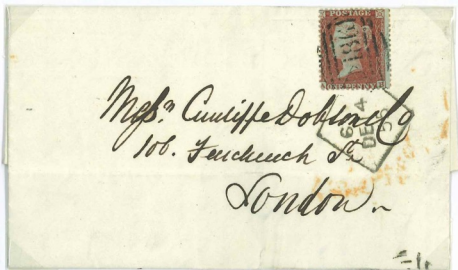 POSTAGE
Messrs Cunliffe Dobson & Co
106. Fenchurch St
London
DE 4